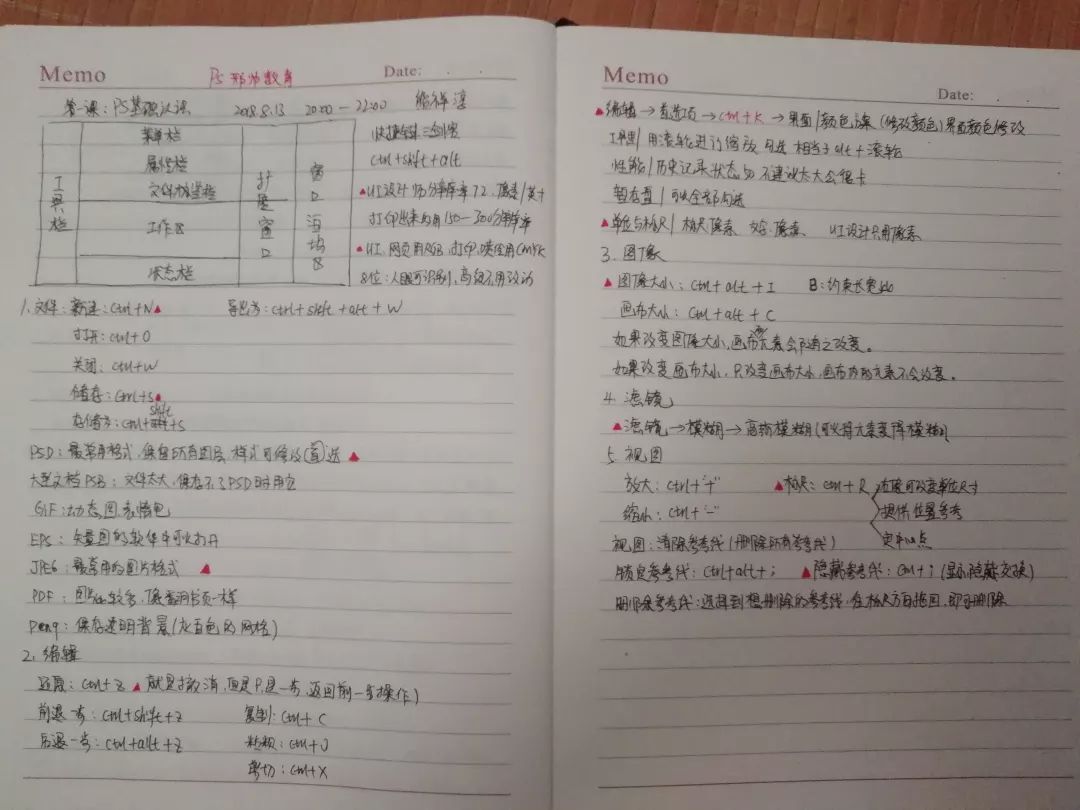 Memo
Ps邢帅教育
Date:
第一课：PS基础认识 2018.8.13 20:00—22:00
菜单栏
属性栏
工具栏
文件标题栏
工作区
状态栏
扩展窗口
窗口活动区
快捷键三剑客
ctrl+shift+alt
▲UI设计的分辨率72，像素/英寸
打印出来的用150—300分辨率
▲UI、网页用RGB，打印、喷绘用CMYK
8位：人眼可识别，高级不用改动
1.文件：新建：Ctrl+N▲ 导出为：ctrl+shift+alt+W
打开：ctrl+O
关闭：ctrl+W
储存：Ctrl+S▲
存储为：ctrl+shift+S
PSD：最常用格式，保留所有图层，样式可修改 ▲
大型文档PSB：文件太大，保存不了PSD时用它
GIF：动态图，表情包
EPS：矢量图的软件中可以打开
JPEG：最常用的图片格式 ▲
PDF：图片比较多，像查阅书页一样
peng：保存透明背景(灰白色的网格)
2.编辑
还原：ctrl+z ▲就是撤消，但是只是一步，返回前一步操作)
前进一步：ctrl+shift+z 复制：ctrl+C
后退一步：ctrl+alt+z 粘贴：ctrl+V
剪切：ctrl+X
Memo
Date:
▲编辑→首选项→ctrl+K→界面/颜色方案(修改颜色)界面颜色修改
工具/用滚轮进行缩放 勾选 相当于alt+滚轮
性能/历史记录状态50 不建议太大会很卡
暂存盘/可以全部勾选
▲单位与标尺/标尺.像素 文字.像素 UI设计只用像素
3.图像
▲图像大小：ctrl+alt+I 8：约束长宽比
画布大小：ctrl+alt+C
如果改变图像大小，画布元素会随之改变。
如果改变画布大小，只改变画布大小，画布内的元素不会改变。
4.滤镜
▲滤镜→模糊→高斯模糊(可以将元素变得模糊)
5.视图
放大：ctrl+"+" ▲标尺：ctrl+R 右键可改变单位尺寸
缩小：ctrl+"-" 提供位置参考
视图：清除参考线(删除所有参考线) 定中心点
锁定参考线：Ctrl+alt+; ▲隐藏参考线：ctrl+;(显示隐藏交换)
删除参考线：选择到想删除的参考线，往标尺方向拖回，即可删除